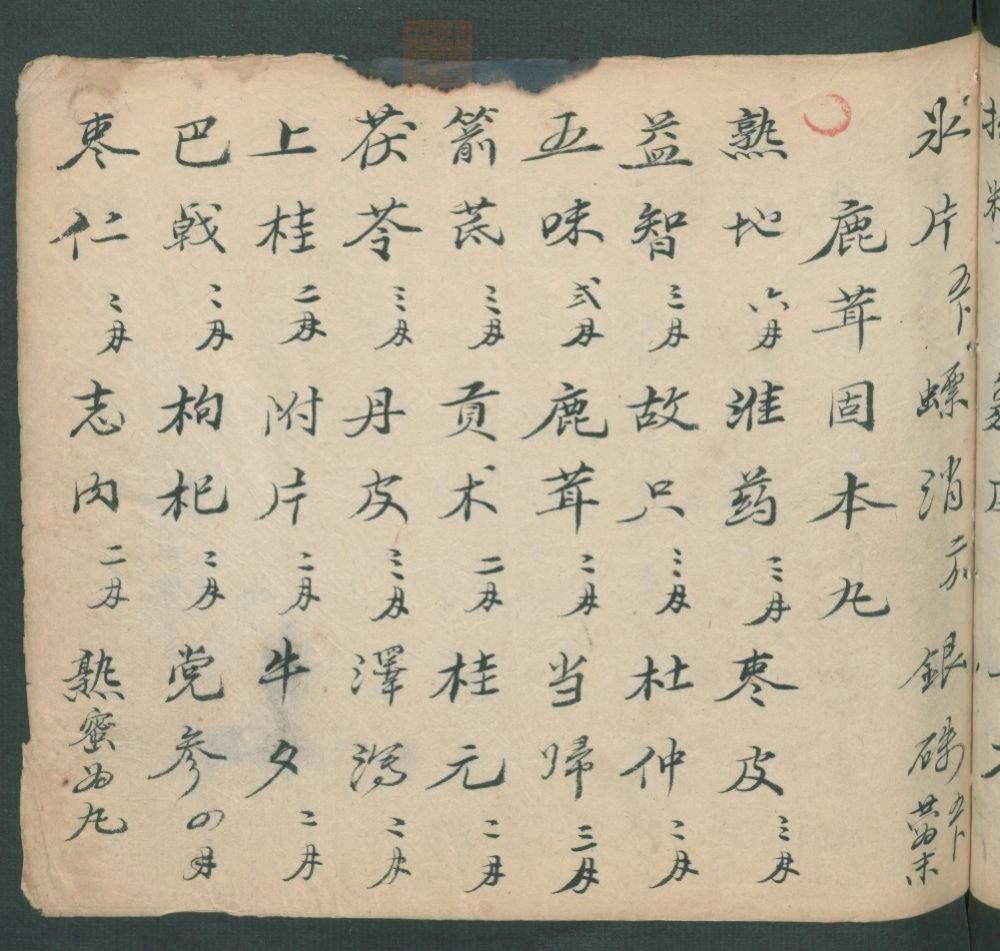 氷片 螵消 銀硃 共为末
鹿茸固本丸
熟地 六两 淮药 三两 枣皮 三两
益智 三两 故只 三两 杜仲 二两
五味 弍两 鹿茸 二两 当帰 三两
箭芪 三两 贡术 二两 桂元 二两
茯苓 三两 丹皮 三两 澤泻 二两
上桂 二两 附片 二两 牛夕 二两
巴戟 二两 枸杞 二两 党参 四两
枣仁 二两 志肉 二两 熟蜜为丸